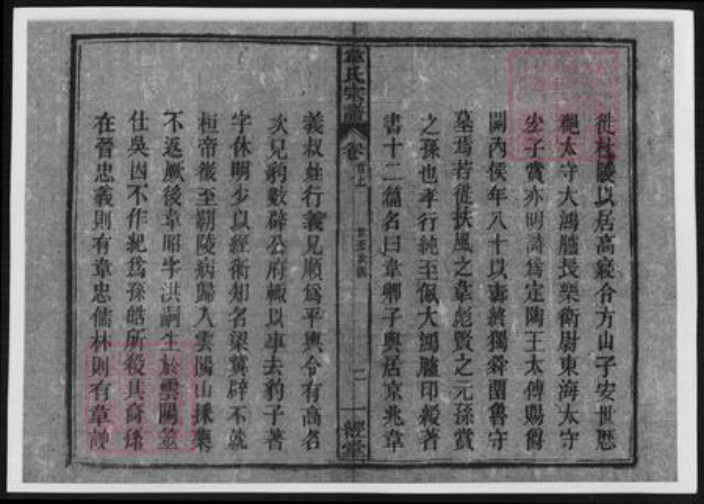 徙杜陵以居高寢令方山子安世歷
太守大鴻臚長樂衛尉東海太守
宏子賞亦明詩為定陶王太傅賜爵
關內侯年八十以壽終獨舜留魯守
墓焉若從扶風之韋彪賢之元孫賞
之孫也孝行純至佩大鴻臚印綬著
書十二篇名曰韋卿子與居京兆韋
韋氏宗譜
卷首上
一經堂
義叔姓行義兄順為平輿令有高名
次兄豹數辟公府輒以事去豹子著
字休明少以經術知名梁冀辟不就
桓帝徵至霸陵病歸入雲陽山採藥
不返厥後韋昭字洪嗣生於雲陽並
仕吳因不作紀為孫皓所殺其裔孫
在晉忠義則有韋忠儒林則有韋謏